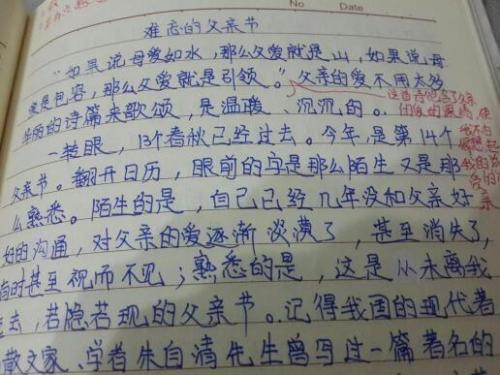 No Date
难忘的父亲节
"如果说母爱如水,那么父爱就是山,如果说母
爱是包容,那么父爱就是引领。"父亲的爱不用太多
华丽的诗篇来歌颂,是温暖、沉沉的。
一转眼,13个春秋已经过去。今年,是第14个
父亲节。翻开日历,眼前的字是那么陌生又是那
么熟悉。陌生的是,自己已经几年没和父亲好
好的沟通,对父亲的爱逐渐淡薄了,甚至消失了,
有时甚至视而不见;熟悉的是,这是从未离我
远去,若隐若现的父亲节。记得我国的现代著
散文家、学者朱自清先生曾写过一篇著名的